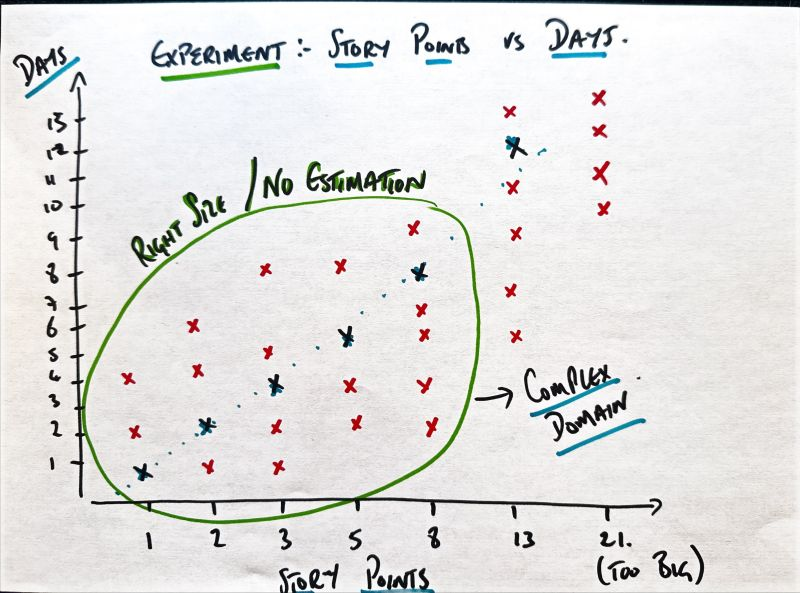 EXPERIMENT :- STORY POINTS vs DAYS.
DAYS
13
12
11
10
9
8
7
6
5
4
3
2
1
RIGHT SIZE / NO ESTIMATION
COMPLEX
DOMAIN
1 2 3 5 8 13 21.
(TOO BIG)
STORY POINTS